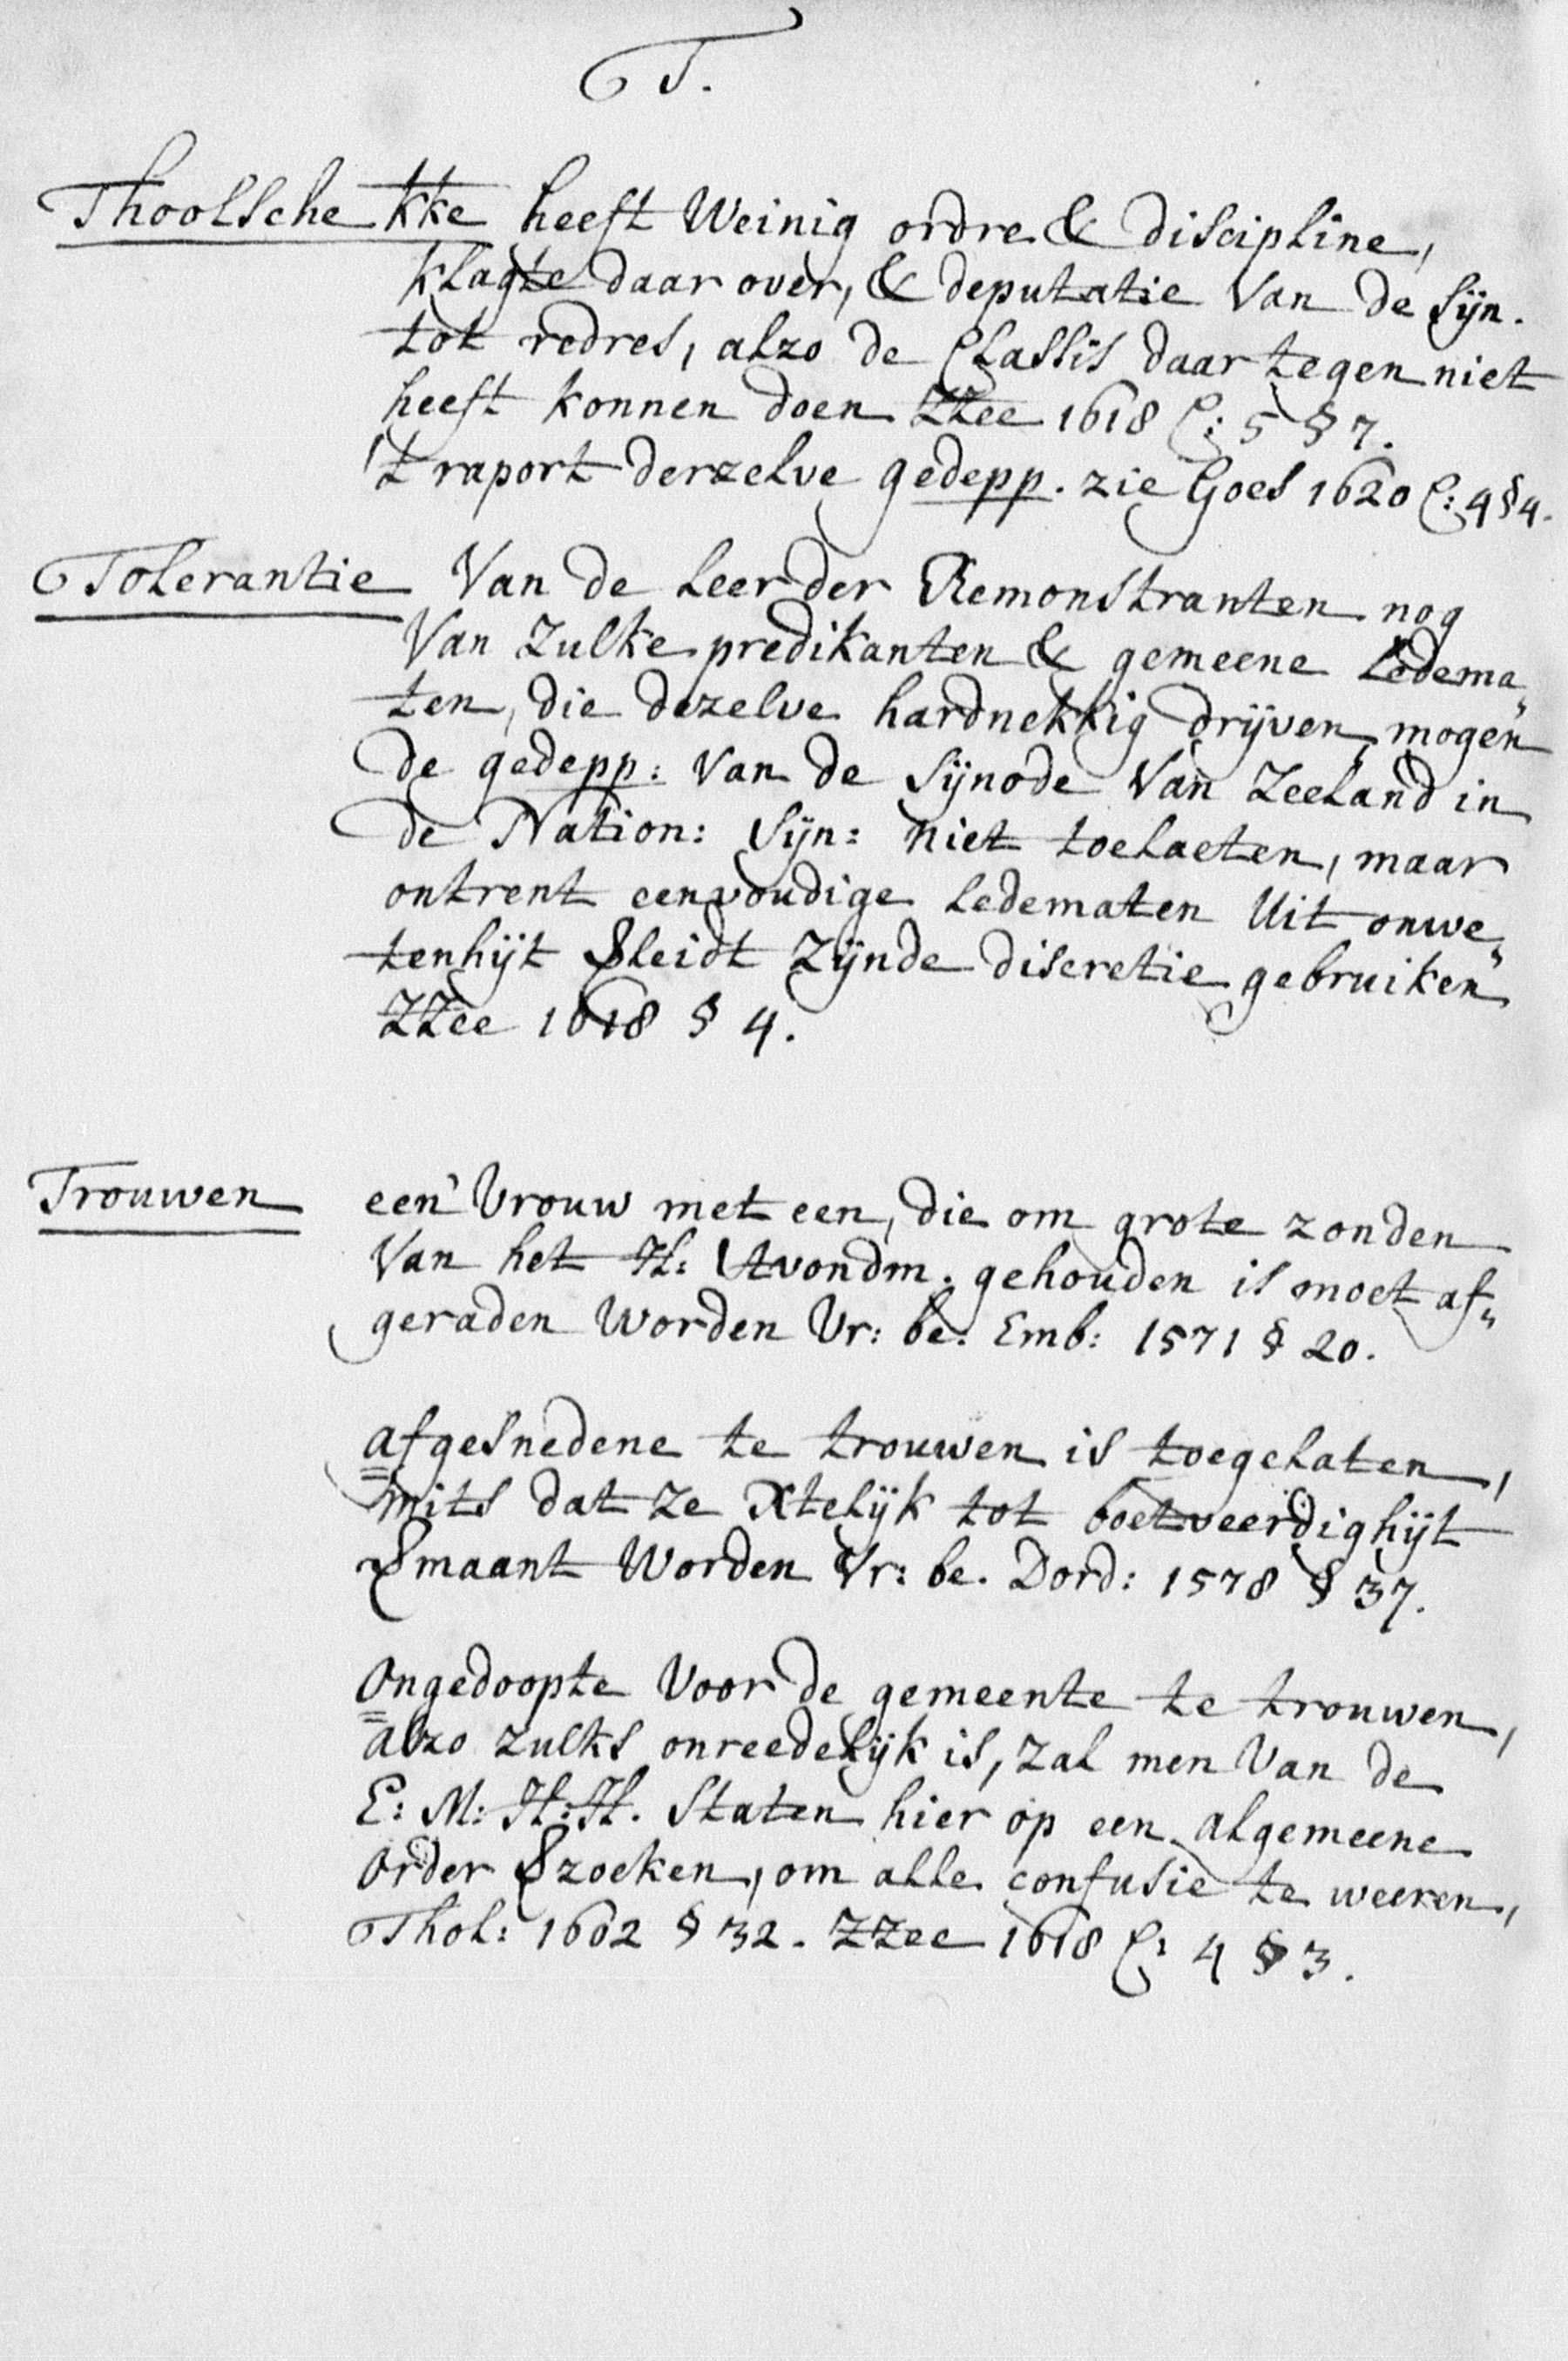 T.
Thoolsche kke heeft Weinig ordre & discipline,
klagte daar over, & deputatie Van de Sijn.
tot redres, alzo de Classis daar tegen niet
heeft konnen doen ZZee 1618 C: 5 § 7.
't raport derzelve gedepp. zie Goes 1620 C: 4 § 4.
Tolerantie Van de Leer der Remonstranten nog
Van Zulke predikanten & gemeene Ledema„
ten, die dezelve hardnekkig drijven, mogen
de gedepp: Van de Sijnode Van Zeeland in
de Nation: Sijn: niet toelaeten, maar
ontrent eenvoudige Ledematen Uit onwe„
tenhijt Sleidt Zijnde discretie gebruiken
ZZee 1618 § 4.
Trouwen een' Vrouw met een, die om grote zonden
Van het H: Avondm. gehouden is moet af„
geraden Worden Vr: be: Emb: 1571 § 20.
afgesnedene te trouwen is toegelaten,
mits dat ze Xtelijk tot boetveerdighijt
Smaant Worden Vr: be. Dord: 1578 § 37.
Ongedoopte Voor de gemeente te trouwen,
alzo zulks onreedelijk is, zal men Van de
E: M: H: H. Staten hier op een algemeene
order Szoeken, om alle confusie te weeren,
Thol: 1602 § 32. ZZee 1618 C: 4 § 3.